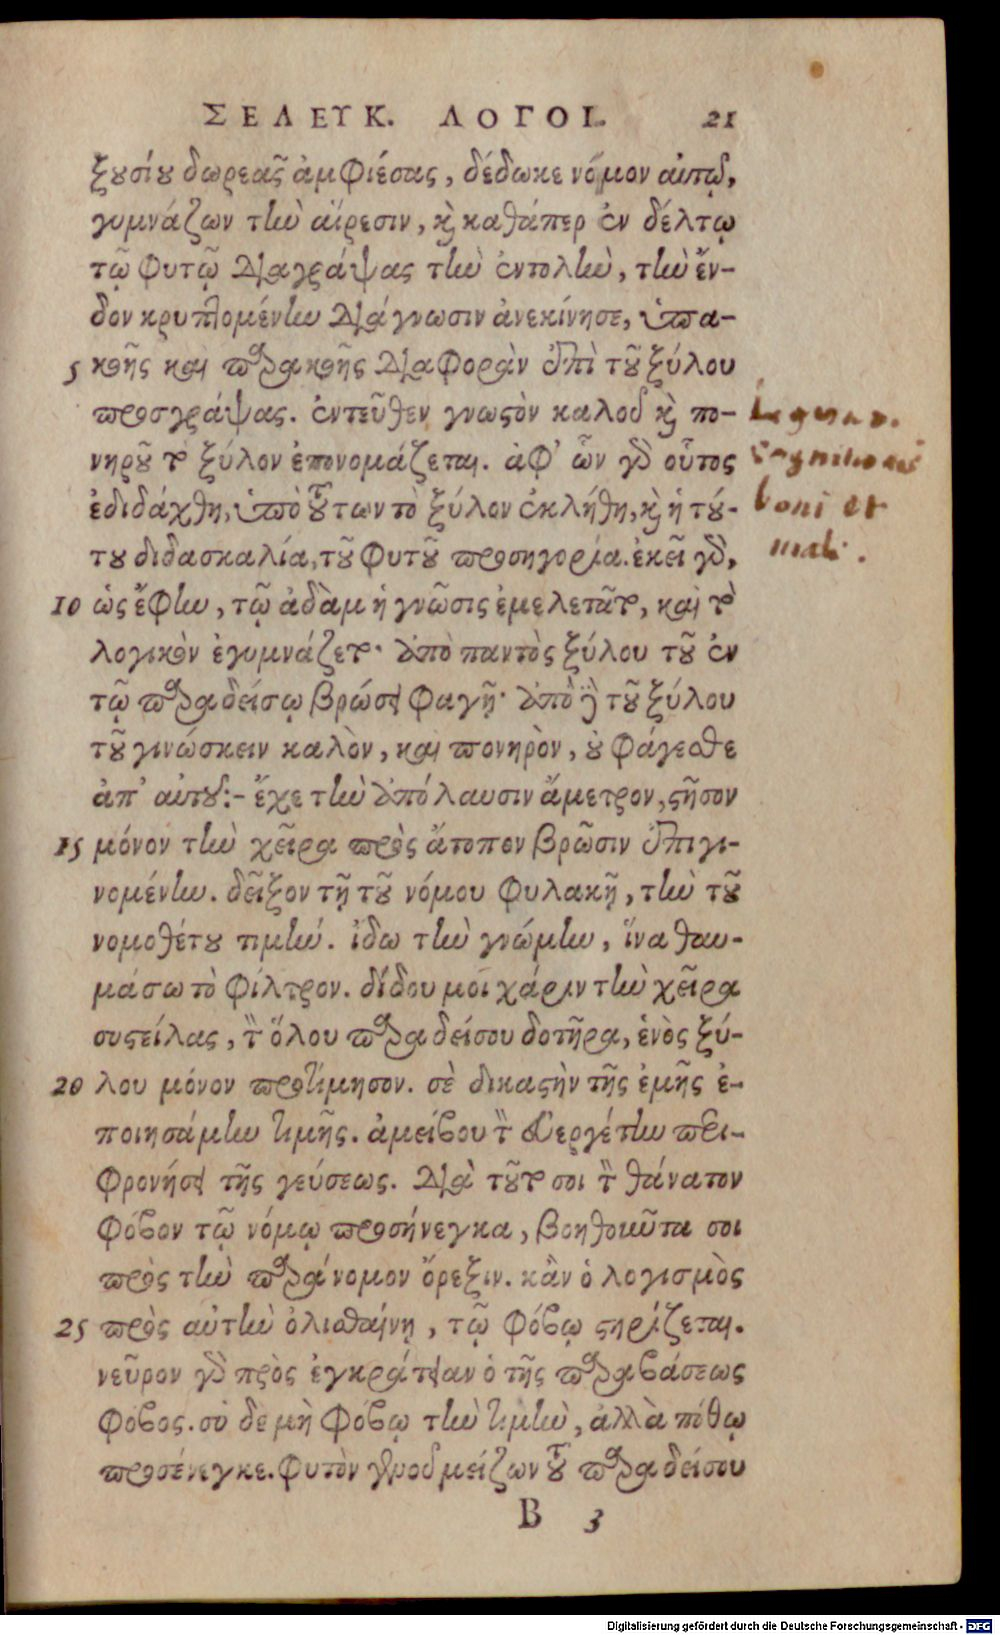 ΣΕΛΕΥΚ. ΛΟΓΟΙ. 21
ξουσίου δωρεᾶς ἀμφιέσας, δέδωκε νόμον αὐτῷ,
γυμνάζων τὴν αἵρεσιν, καὶ καθάπερ ἐν δέλτῳ
τῷ φυτῷ διαγράψας τὴν ἐντολὴν, τὴν ἔν-
δον κρυπτομένην διάγνωσιν ἀνεκίνησε, ὑπα-
5 κοῆς καὶ παρακοῆς διαφορὰν ἐπὶ τοῦ ξύλου
προσγράψας. ἐντεῦθεν γνωστὸν καλοῦ καὶ πο-
νηροῦ τὸ ξύλον ἐπονομάζεται. ἀφ' ὧν γὰρ οὗτος
ἐδιδάχθη, ὑπὸ τούτων τὸ ξύλον ἐκλήθη, καὶ ἡ τού-
του διδασκαλία, τοῦ φυτοῦ προσηγορία. ἐκεῖ γὰρ,
10 ὡς ἔφην, τῷ ἀδὰμ ἡ γνῶσις ἐμελετᾶτο, καὶ τὸ
λογικὸν ἐγυμνάζετο· ἀπὸ παντὸς ξύλου τοῦ ἐν
τῷ παραδείσῳ βρώσει φαγῇ· ἀπὸ δὲ τοῦ ξύλου
τοῦ γινώσκειν καλὸν, καὶ πονηρὸν, οὐ φάγεσθε
ἀπ' αὐτοῦ:- ἔχε τὴν ἀπόλαυσιν ἄμετρον, στῆσον
15 μόνον τὴν χεῖρα πρὸς ἄτοπον βρῶσιν ἐπιγι-
νομένην. δεῖξον τῇ τοῦ νόμου φυλακῇ, τὴν τοῦ
νομοθέτου τιμήν. ἰδω τὴν γνώμην, ἵνα θαυ-
μάσω τὸ φίλτρον. δίδου μοι χάριν τὴν χεῖρα
συστείλας, τὸν ὅλου παραδείσου δοτῆρα, ἑνὸς ξύ-
20 λου μόνον προτίμησον. σὲ δικαστὴν τῆς ἐμῆς ἐ-
ποιησάμην τιμῆς. ἀμείβου τὸν εὐεργέτην περι-
φρονήσει τῆς γεύσεως. διὰ τοῦτο σοι τὸν θάνατον
φόβον τῷ νόμῳ προσήνεγκα, βοηθοῦντα σοι
πρὸς τὴν παράνομον ὄρεξιν. κἂν ὁ λογισμὸς
25 πρὸς αὐτὴν ὀλισθαίνῃ, τῷ φόβῳ στηρίζεται.
νεῦρον γὰρ πρὸς ἐγκράτειαν ὁ τῆς παραβάσεως
φόβος. σὺ δε μὴ φόβῳ τὴν τιμὴν, ἀλλὰ πόθῳ
προσένεγκε. φυτὸν γὰρ μοῦ μείζων τοῦ παραδείσου
B 3
Lignum.
cognitionis
boni et
mali.